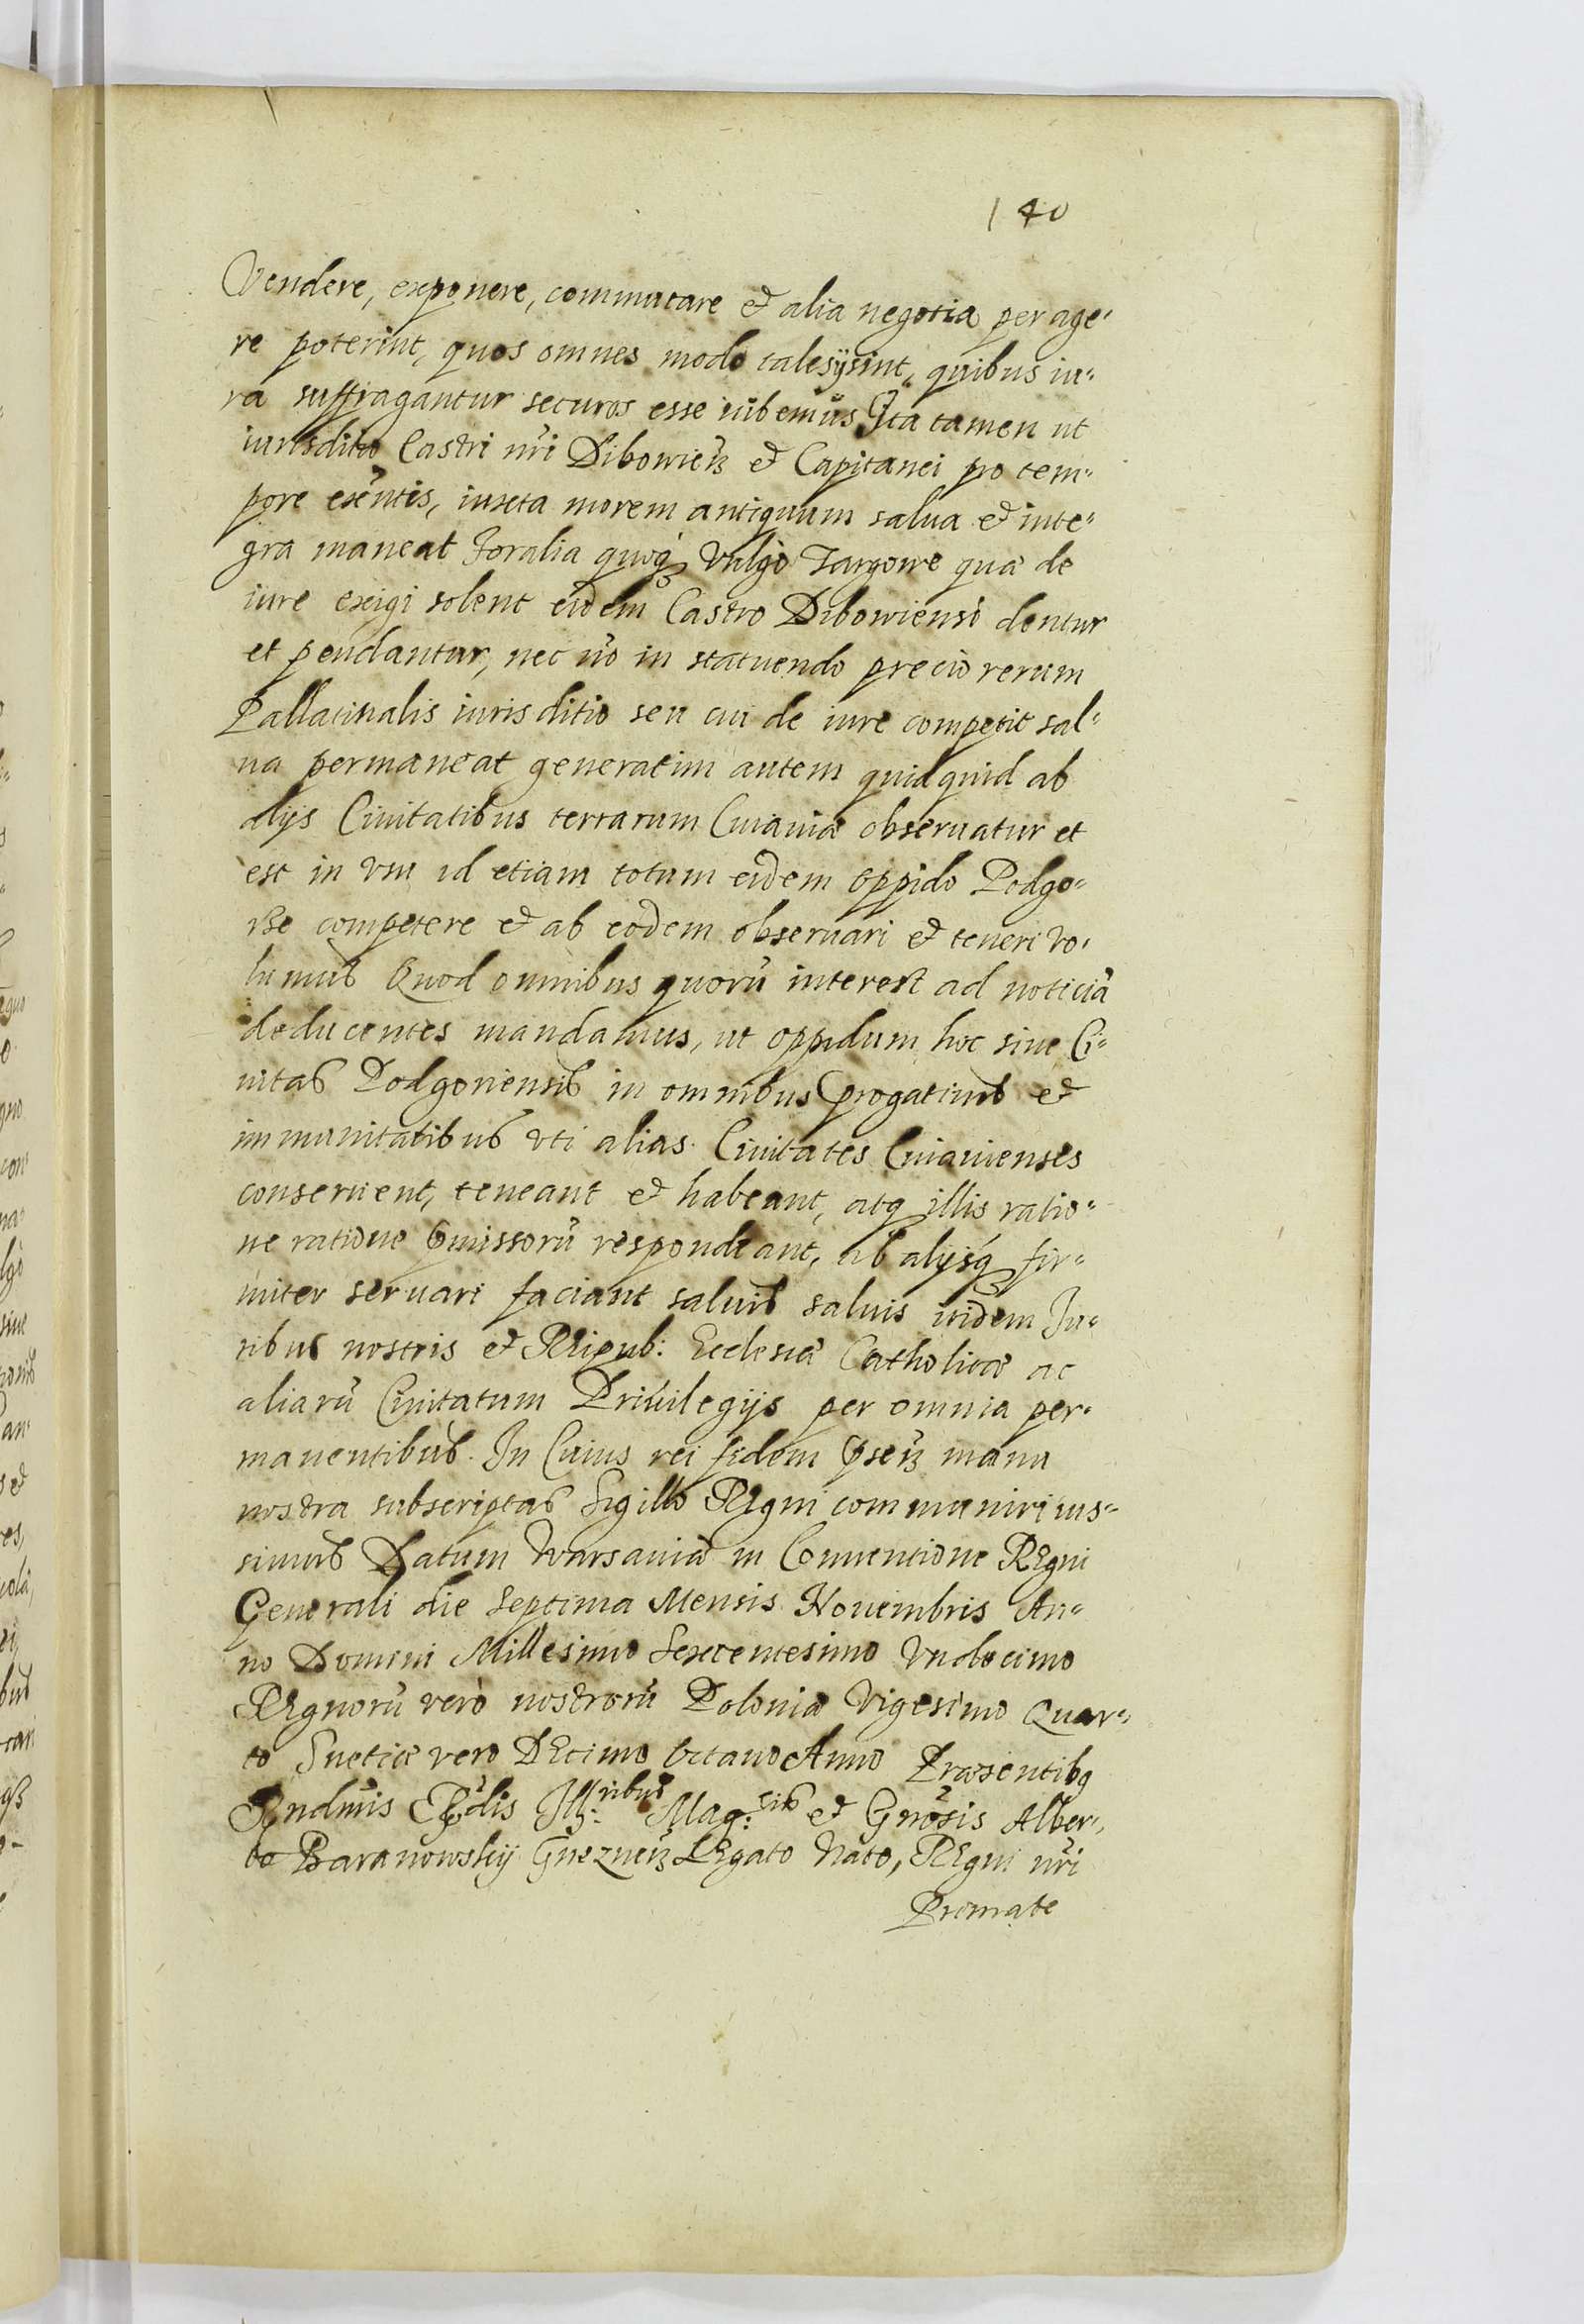 140
Vendere, exponere, commutare et alia negotia perage-
re poterint, quos omnes modo tales ÿ sint, quibus iu-
ra suffragantur securos esse iubemus Ita tamen ut
iurisditio Castri nri Dibowien et Capitanei pro tem-
pore exntis, iuxta morem antiquum salua et inte-
gra maneat Foralia quoq Vulgo Targowe quæ de
iure exigi solent eidem Castro Dibowiensi dentur
et pendantur, nec vo in statuendo precio rerum
Pallatinalis iurisditio seu cui de iure competit sal-
ua permaneat generatim autem quidquid ab
alÿs Ciuitatibus terrarum Cuiauiæ obseruatur et
est in vsu id etiam totum eidem oppido Podgo-
rze competere et ab eodem obseruari et teneri vo-
lumus Quod omnibus quorū interest ad noticiā
deducentes mandamus, ut oppidum hoc siue Ci-
uitas Podgoriensis in omnibus progatiuis et
immunitatibus vti alias Ciuitates Cuiauienses
conseruent, teneant et habeant, atq illis ratio-
ne ratione pmissorū respondeant, ab alÿsq fir-
miter seruari faciant saluis saluis itidem Iu-
ribus nostris et REipub: Ecclesiæ Catholicæ ac
aliarū Ciuitatum Priuilegÿs per omnia per-
manentibus. In Cuius rei fidem psen manu
nostra subscriptas Sigillo REgni communiri ius-
simus Datum Warsauiæ in Conuentione REgni
Generali die Septima Mensis Nouembris An-
no Domini Millesimo Sexcentesimo Vndecimo
REgnorū vero nostrorū Poloniæ Vigesimo Quar-
to Suetiæ vero DEcimo Octauo Anno Præsentibq
Rndmis Rndis Ill:ribus Mag:cis et Gnosis Alber-
to Baranowskÿ Gneznen LEgato Nato, REgni nri
Primate